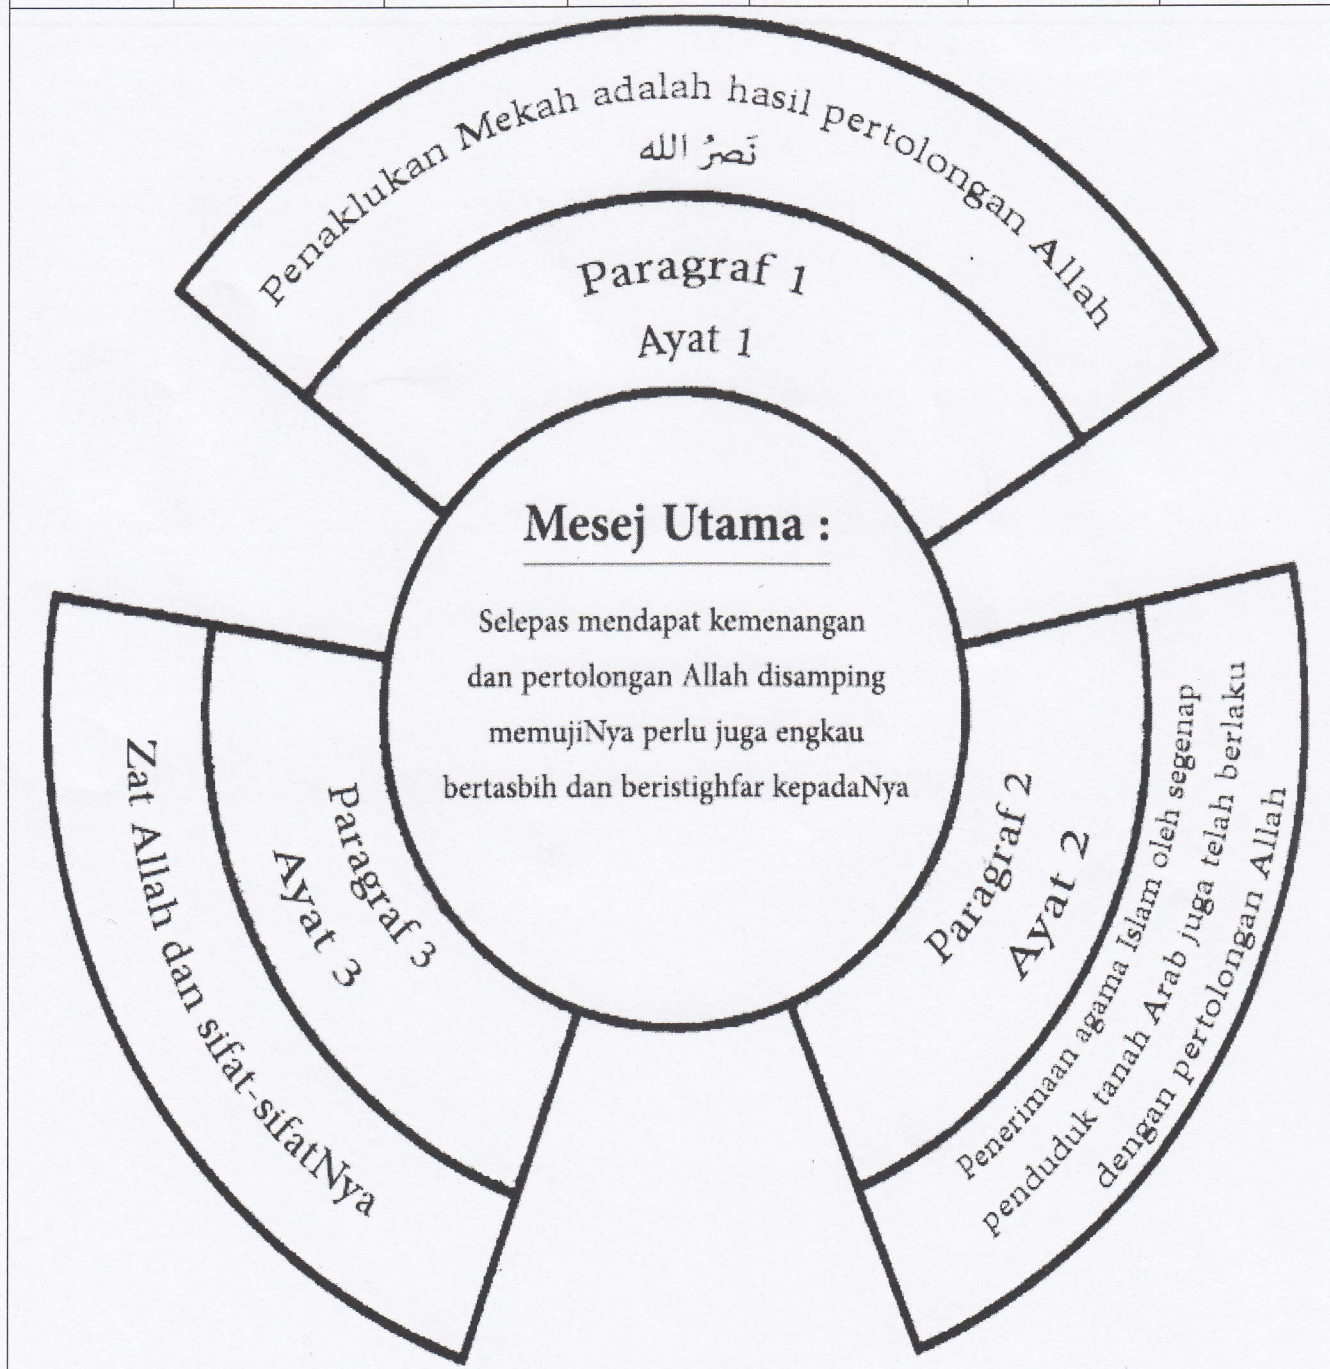 Penaklukan Mekah adalah hasil pertolongan Allah
نَصرُ الله
Paragraf 1
Ayat 1
Mesej Utama :
Selepas mendapat kemenangan
dan pertolongan Allah disamping
memujiNya perlu juga engkau
bertasbih dan beristighfar kepadaNya
Paragraf 2
Ayat 2
Penerimaan agama Islam oleh segenap
penduduk tanah Arab juga telah berlaku
dengan pertolongan Allah
Paragraf 3
Ayat 3
Zat Allah dan sifat-sifatNya